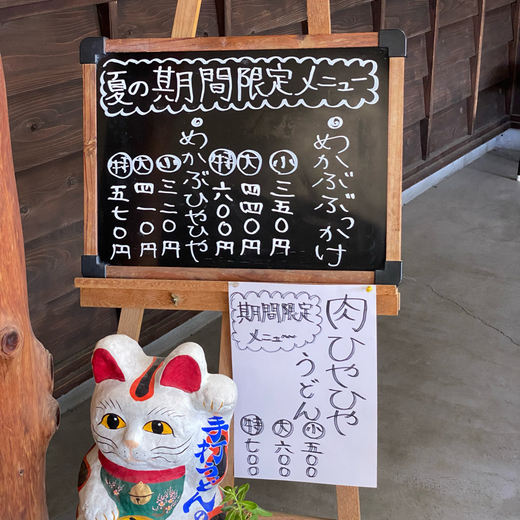 夏の期間限定メニュー
めかぶぶっかけ
小三五〇円
大四四〇円
特六〇〇円
めかぶひやひや
小三二〇円
大四一〇円
特五七〇円
期間限定
メニュー
肉ひやひや
うどん
小五〇〇
大六〇〇
特七〇〇
手打うどんの